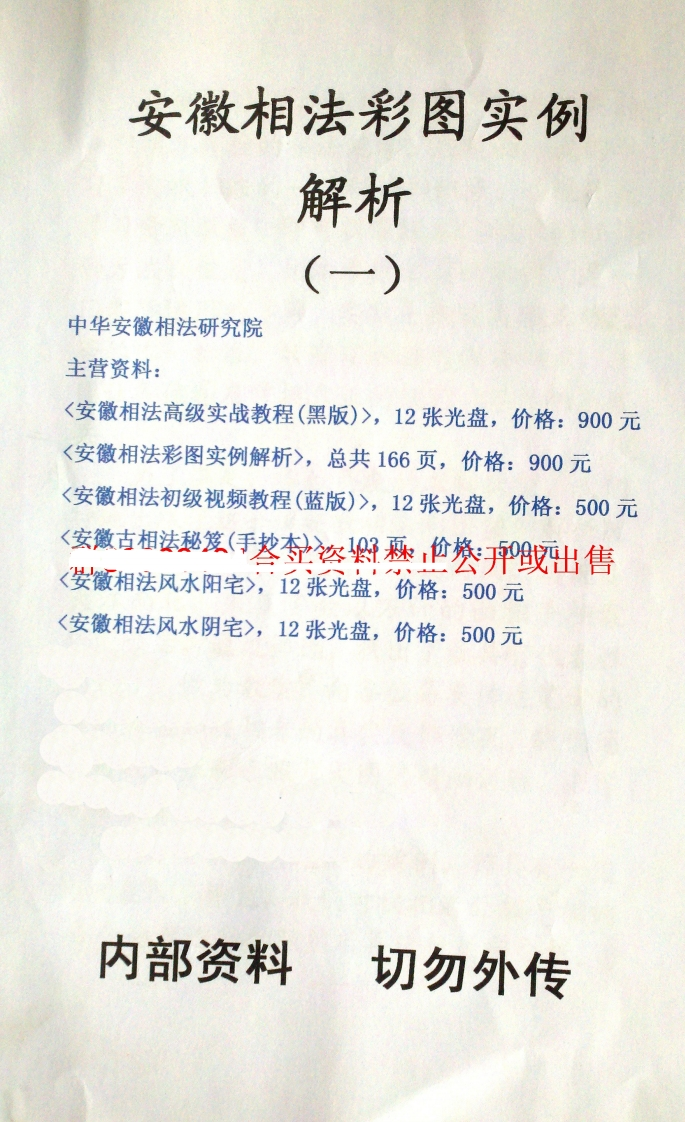 安徽相法彩图实例
解析
（一）
中华安徽相法研究院
主营资料：
<安徽相法高级实战教程(黑版)>，12张光盘，价格：900元
<安徽相法彩图实例解析>，总共166页，价格：900元
<安徽相法初级视频教程(蓝版)>，12张光盘，价格：500元
<安徽古相法秘笈(手抄本)>，103页，价格：500元
合买资料禁止公开或出售
<安徽相法风水阳宅>，12张光盘，价格：500元
<安徽相法风水阴宅>，12张光盘，价格：500元
内部资料 切勿外传